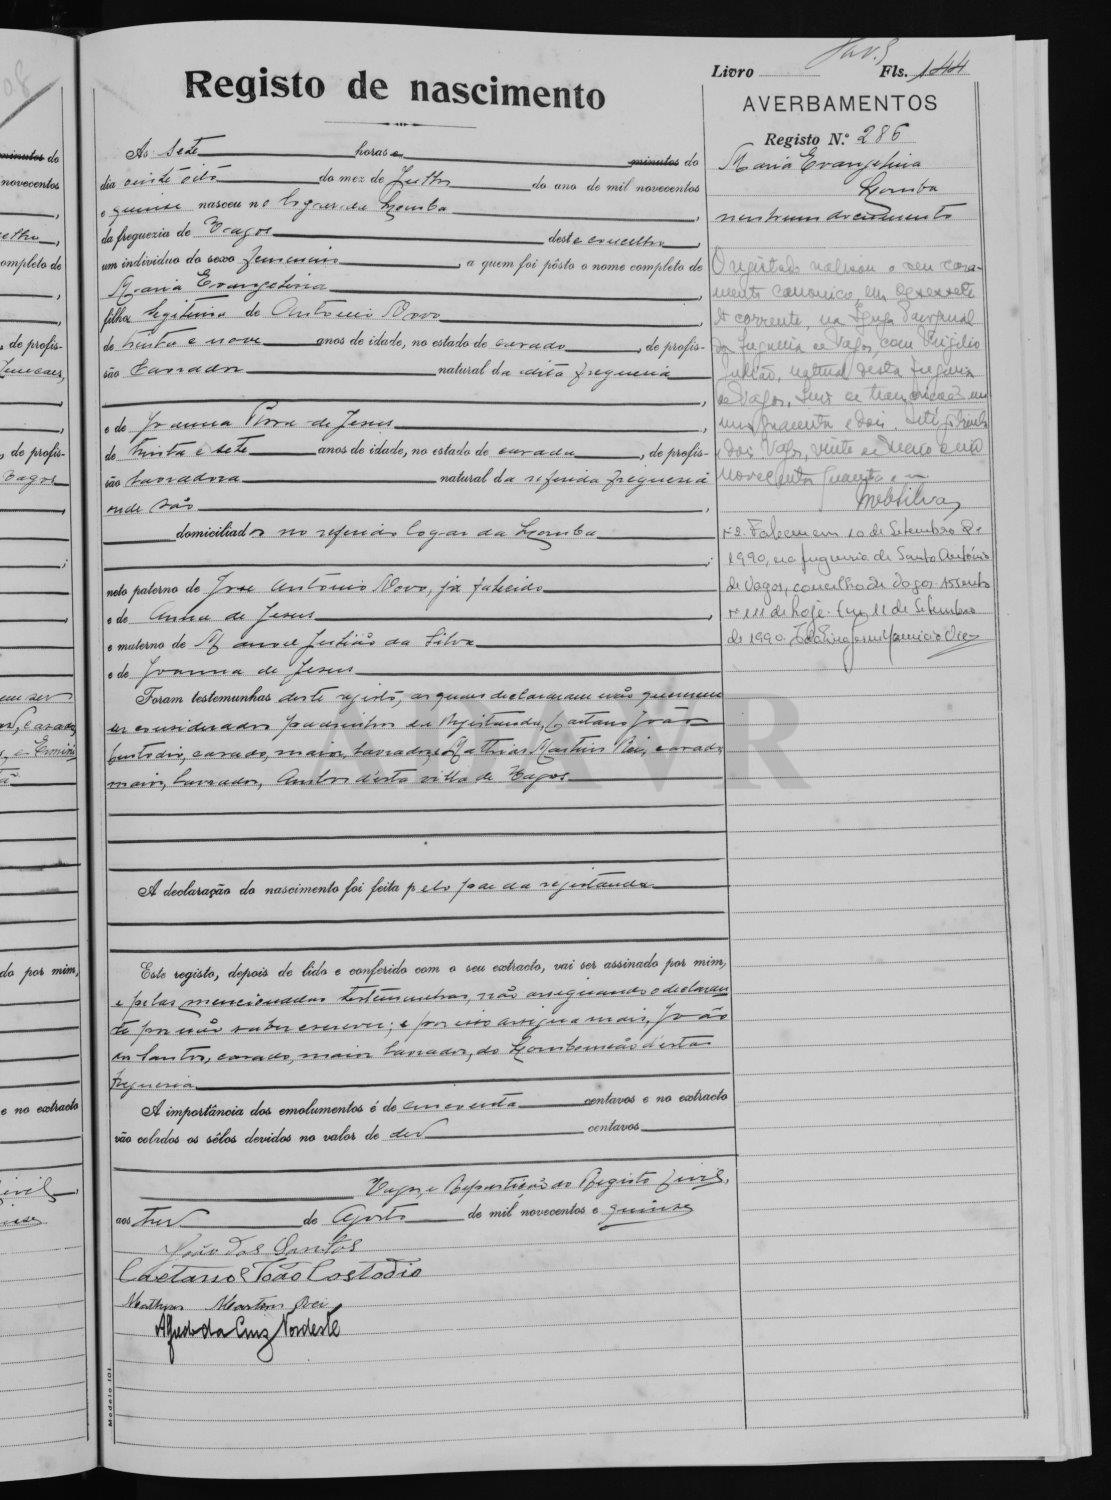 Registo de nascimento
Livro Fls. 144
AVERBAMENTOS
Registo N.º 286
Maria Evangelina
Lomba
nenhum documento
Às sete horas e minutos do
dia vinte oito do mez de Julho do ano de mil novecentos
e quinse nasceu no logar da Lomba,
da freguezia de Vagos deste concelho,
um individuo do sexo femenino, a quem foi pôsto o nome completo de
Maria Evangelina,
filha legitima de António Novo,
de trinta e nove anos de idade, no estado de casado, de profis-
são Lavrador natural da dita freguesia,
e de Joanna Rosa de Jesus,
de trinta e sete anos de idade, no estado de casada, de profis-
são lavradora natural da referida freguesia
onde são,
domiciliados no referido logar da Lomba;
neto paterno de José António Novo, já falecido
e de Anna de Jesus,
e materno de Manoel Julião da Silva
e de Joanna de Jesus
Foram testemunhas deste registo, as quaes declararam não quererem
ser considerados padrinhos da Registanda, Caetano João
Custodio, casado, maior, lavrador, e Mathias Martins Rei, casado
maior, lavrador, ambos d'esta villa de Vagos
A declaração do nascimento foi feita pelo pae da registanda
Este registo, depois de lido e conferido com o seu extracto, vai ser assinado por mim,
e pelas mencionadas testemunhas, não assignando o declaran
te por não saber escrever; e por isso assigna mais, João
dos Santos, casado, maior lavrador, do Lombomeão d'esta
freguesia
A importância dos emolumentos é de cincoenta centavos e no extracto
vão colados os sêlos devidos no valor de dez centavos
Vagos, e Repartição do Registo Civil,
aos trez de Agosto de mil novecentos e quinse
João dos Santos
Caetano João Costodio
Mathias Martins Rei
Alfredo da Cruz Nordeste
Modelo 101
O registado realisou o seu casa-
mento canonico em desessete
do corrente, na Igreja Paroquial
da freguesia de Vagos, com Virgilio
Julião, natural desta freguesia
de Vagos,
Vagos, vinte e
novecentos quarenta e
nº 2. Faleceu em 10 de Setembro de
1990, na freguesia de Santo António
de Vagos, concelho de Vagos. Assento
nº 111 de hoje. Em 11 de Setembro
de 1990.
ADAVR
minutos do
novecentos
ompleto de
, de profis-
, de profis-
Vagos
do por mim,
e no extracto